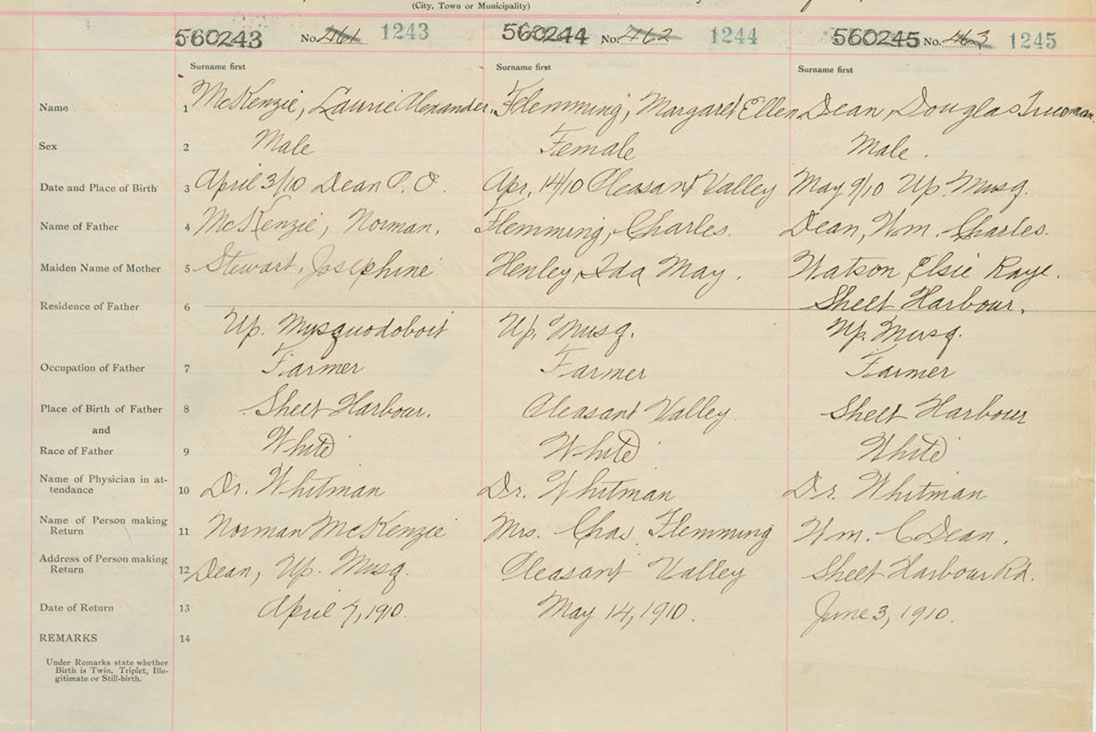 (City, Town or Municipality)
560243 No. 461 1243 560244 No. 462 1244 560245 No. 463 1245
Surname first Surname first Surname first
Name 1 McKenzie, Laurie Alexander. Flemming, Margaret Ellen Dean, Douglas Trueman.
Sex 2 Male Female Male.
Date and Place of Birth 3 April 3/10 Dean P.O. Apr. 14/10 Pleasant Valley May 9/10 Up. Musq.
Name of Father 4 McKenzie, Norman. Flemming, Charles. Dean, Wm. Charles.
Maiden Name of Mother 5 Stewart, Josephine Henley, Ida May. Watson, Elsie Raye.
Sheet Harbour.
Residence of Father 6 Up. Musquodoboit Up. Musq. Up. Musq.
Occupation of Father 7 Farmer Farmer Farmer
Place of Birth of Father 8 Sheet Harbour. Pleasant Valley Sheet Harbour
and
Race of Father 9 White White White
Name of Physician in at-
tendance 10 Dr. Whitman Dr. Whitman Dr. Whitman
Name of Person making
Return 11 Norman McKenzie Mrs. Chas. Flemming Wm. C Dean.
Address of Person making
Return 12 Dean, Up. Musq. Pleasant Valley Sheet Harbour Rd.
Date of Return 13 April 7, 1910. May 14, 1910. June 3, 1910.
REMARKS 14
Under Remarks state whether
Birth is Twin, Triplet, Ille-
gitimate or Still-birth.